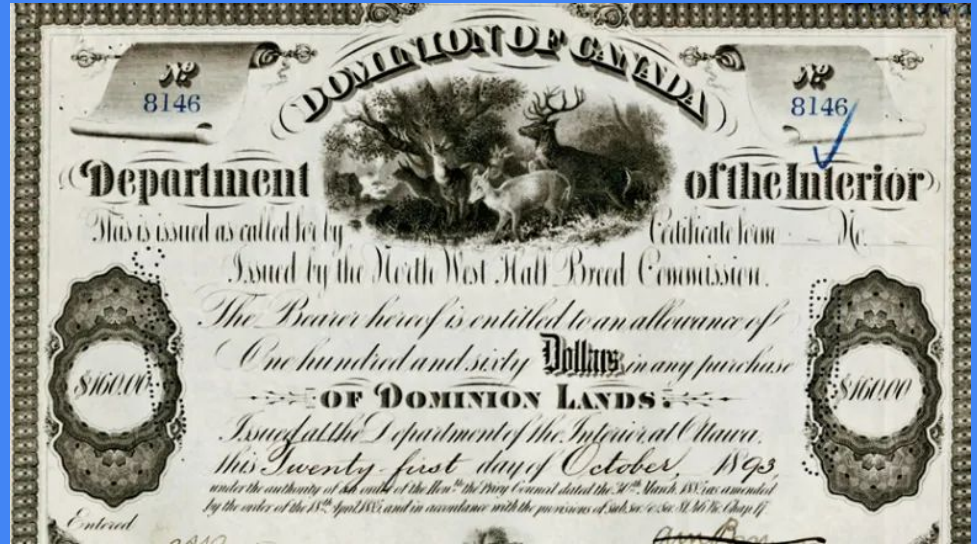 DOMINION OF CANADA
No 8146
No 8146
Department of the Interior
This is issued as called for by Certificate form No.
Issued by the North West Half Breed Commission.
The Bearer hereof is entitled to an allowance of
One hundred and sixty Dollars in any purchase
$160.00
$160.00
OF DOMINION LANDS.
Issued at the Department of the Interior at Ottawa,
this Twenty-first day of October, 1893
under the authority of an order of the Honble the Privy Council dated the 30th March 1885, as amended
by the order of the 18th April 1885, and in accordance with the provisions of Sub Sec. Sec. Vic. Chap 17.
Entered